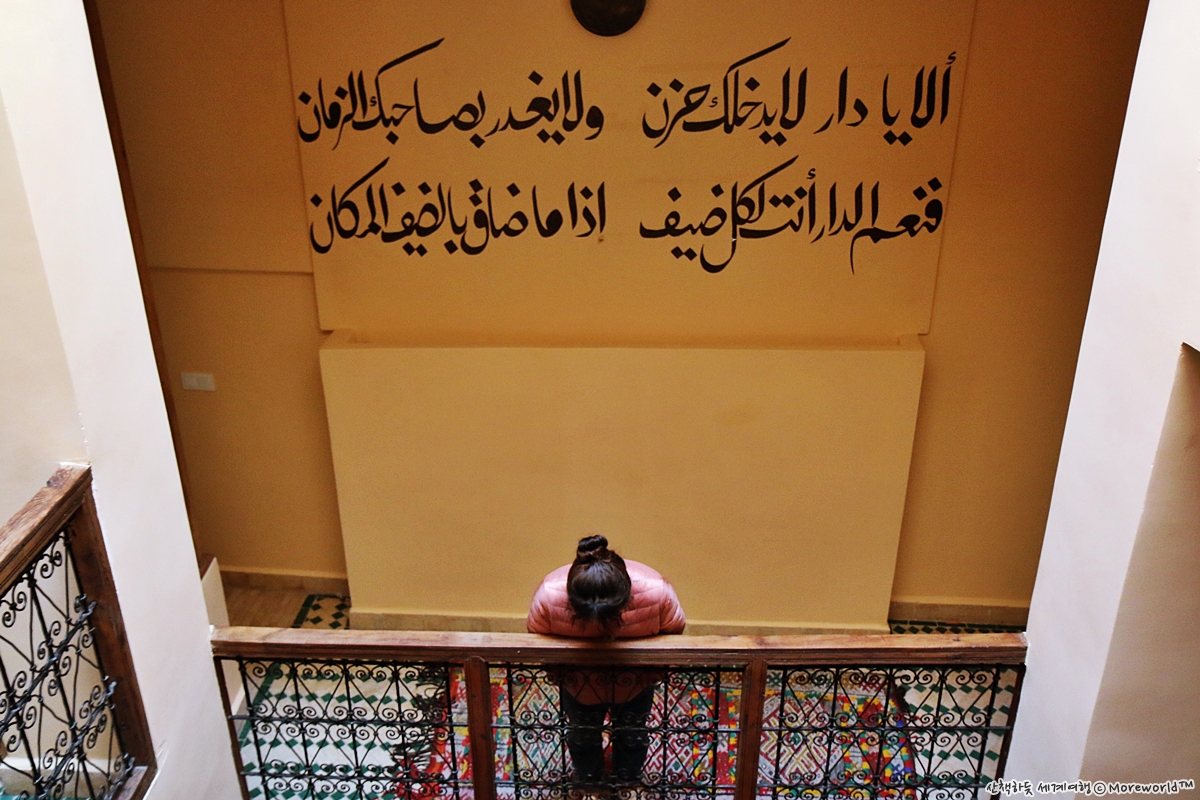 ألا يا دار لا يدخلك حزن ولا يغدر بصاحبك الزمان
فنعم الدار أنت لكل ضيف اذا ما ضاق بالضيف المكان
산책하듯 세계여행 ⓒ Moreworld™